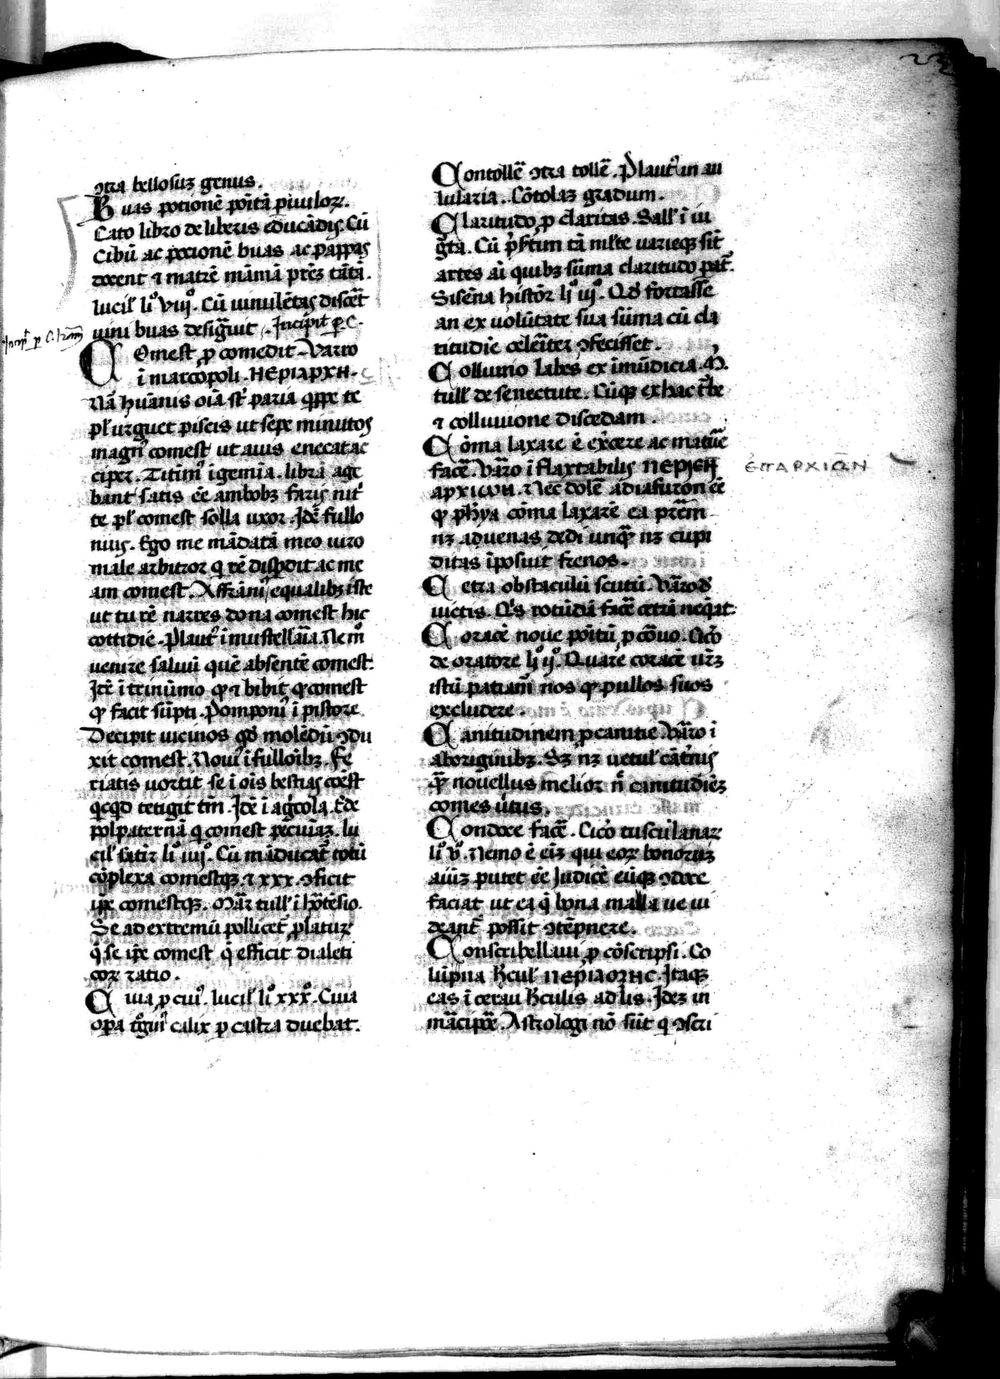 ↄtra bellosuz genus.
Buas potionē poītā pͥuuloꝝ.
Cato libro de liberis educādis. Cū
Cibū ac pocionē buas ac pappas
docent ⁊ matrē māmā prēz tātā.
lucilˡ liͦ viiiͦ. Cū uinulētas discēt
uini buas designauit. Incipit p̱ C.
Comest p̱ comedit. Varro
ī marcopoli. ΠΕΡΙΑΡΧΗ.
Nā huānis oīa st̄ paria qͥppe te
pl̄ urguet piscis ut sepe minutos
magnꝰ comest ut auis enecat ac
ciper. Titinꝰ ī gemīa. libra age
bant satis eē ambobꝫ faris nit͛
te pl̄ comest solla uxor. Idē fullo
nuis. Ego me mādatā meo uiro
male arbitror q rē disp̱dit ac me
am comest. Affraniꝰ equalibꝫ iste
ut tu rē narres dona comest hic
cottidie. Plautꝰ ī mustellaīa. Nemͦ
venire saluū quē absentē comest.
Itē ī trinūmo qͥ ⁊ bibit qͥ comest
qͥ facit sūpti. Pomponiꝰ ī pistore
Decipit uicinos qͩ molēdū ↄdu
xit comest. Nouiꝰ ī fulloībꝫ. Fe
riatis uortit se ī oīs bestias coest
qͥcqͥd tetigit tm̄. Idē ī agͥcola. Ede
pol paternā qͥ comest pecuīaꝫ. lu
cilˡ satir liͦ iiiiͦ. Cū māducat͛ totū
cōplexa comestqꝫ ⁊ xxx. ↄficit
ip̄e comestqꝫ. Mar tulˡ ī hͦrtēsio.
Se ad extremū pollicet͛ platuꝝ
qͥ se ip̄e comest qͥ efficit dialeti
coꝝ ratio.
Cuia p̱ cuiꝰ. lucilˡ liͦ xxxͦ. Cuia
op̱a calix p̱ castra duebat.
Contollē ↄtra tollē. Plautꝰ in au
lularia. Cōtolaꝫ gradum.
Claritudo p̱ claritas. Sallˡ ī iu
gͬta. Cū p̄sͭtim tā multe varieqꝫ sīt
artes aī quibꝫ sūma claritudo pat͛.
Sisēna histor̄ liͦ iiiͦ. Qͩ fortasse
an ex volūtate sua sūma cū cla
ritudie celeīter ↄfecisset.
Colluuio labes ex imūdicia. M.
tullˡ de senectute. Cūqꝫ ex hac t͛be
⁊ colluuione discedam.
Coma laxare ē ex͛cere ac matue͛
facē. Varro ī flaxtabilis ΠΕΡΙΕΠ
ΑΡΧΙΩΗ. Nec dolē adiafuron eē
qͥ phͥa coma laxare ea p̄rem
nꝫ aduenas dedi unqͣ nꝫ cupi
ditas īposuit frenos.
Cetra obstaculū scutū. Varro d
uictis. Qͥs rotūdā facē cetrā neqͣt.
Corace noue poītū p̱ cōuo. Cicͦ
de oratore liͦ iiͦ. Quare corace urꝫ
istū patiam̄ nos qͥ pullos suos
excludere.
Canitudinem p̱ canitie. Varro ī
aboriginibꝫ. Sꝫ nꝫ uetulˡ cāt͛inis
qͣ novellus melior n̄ canitudieꝫ
comes ūtus.
Condere face. Cicͦ tusculanaꝝ
liͦ vͦ. Nemo ē eīꝫ qui eoꝝ bonoruꝫ
auuꝫ putet eē Iudice eūqꝫ ↄdere
faciat ut ea qͥ bona malla ue ui
deant͛ possit ↄtēpnere.
Conscribellaui p̱ cōscripsi. Co
lūpna hͬculˡ ΠΕΡΙΔΟΞΗC. Itaqꝫ
eas ī cetau hͬculis ad lis. Ideꝫ in
mācipͥe. Astrologi nō sūt qͥ ↄscri
ἐπαρχιῶν